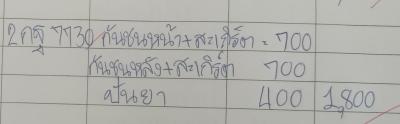 2กฐ 7730 กันชนหน้า+สะเกิร์ต = 700
กันชนหลัง+สะเกิร์ตา 700
ปันยา 400 1,800